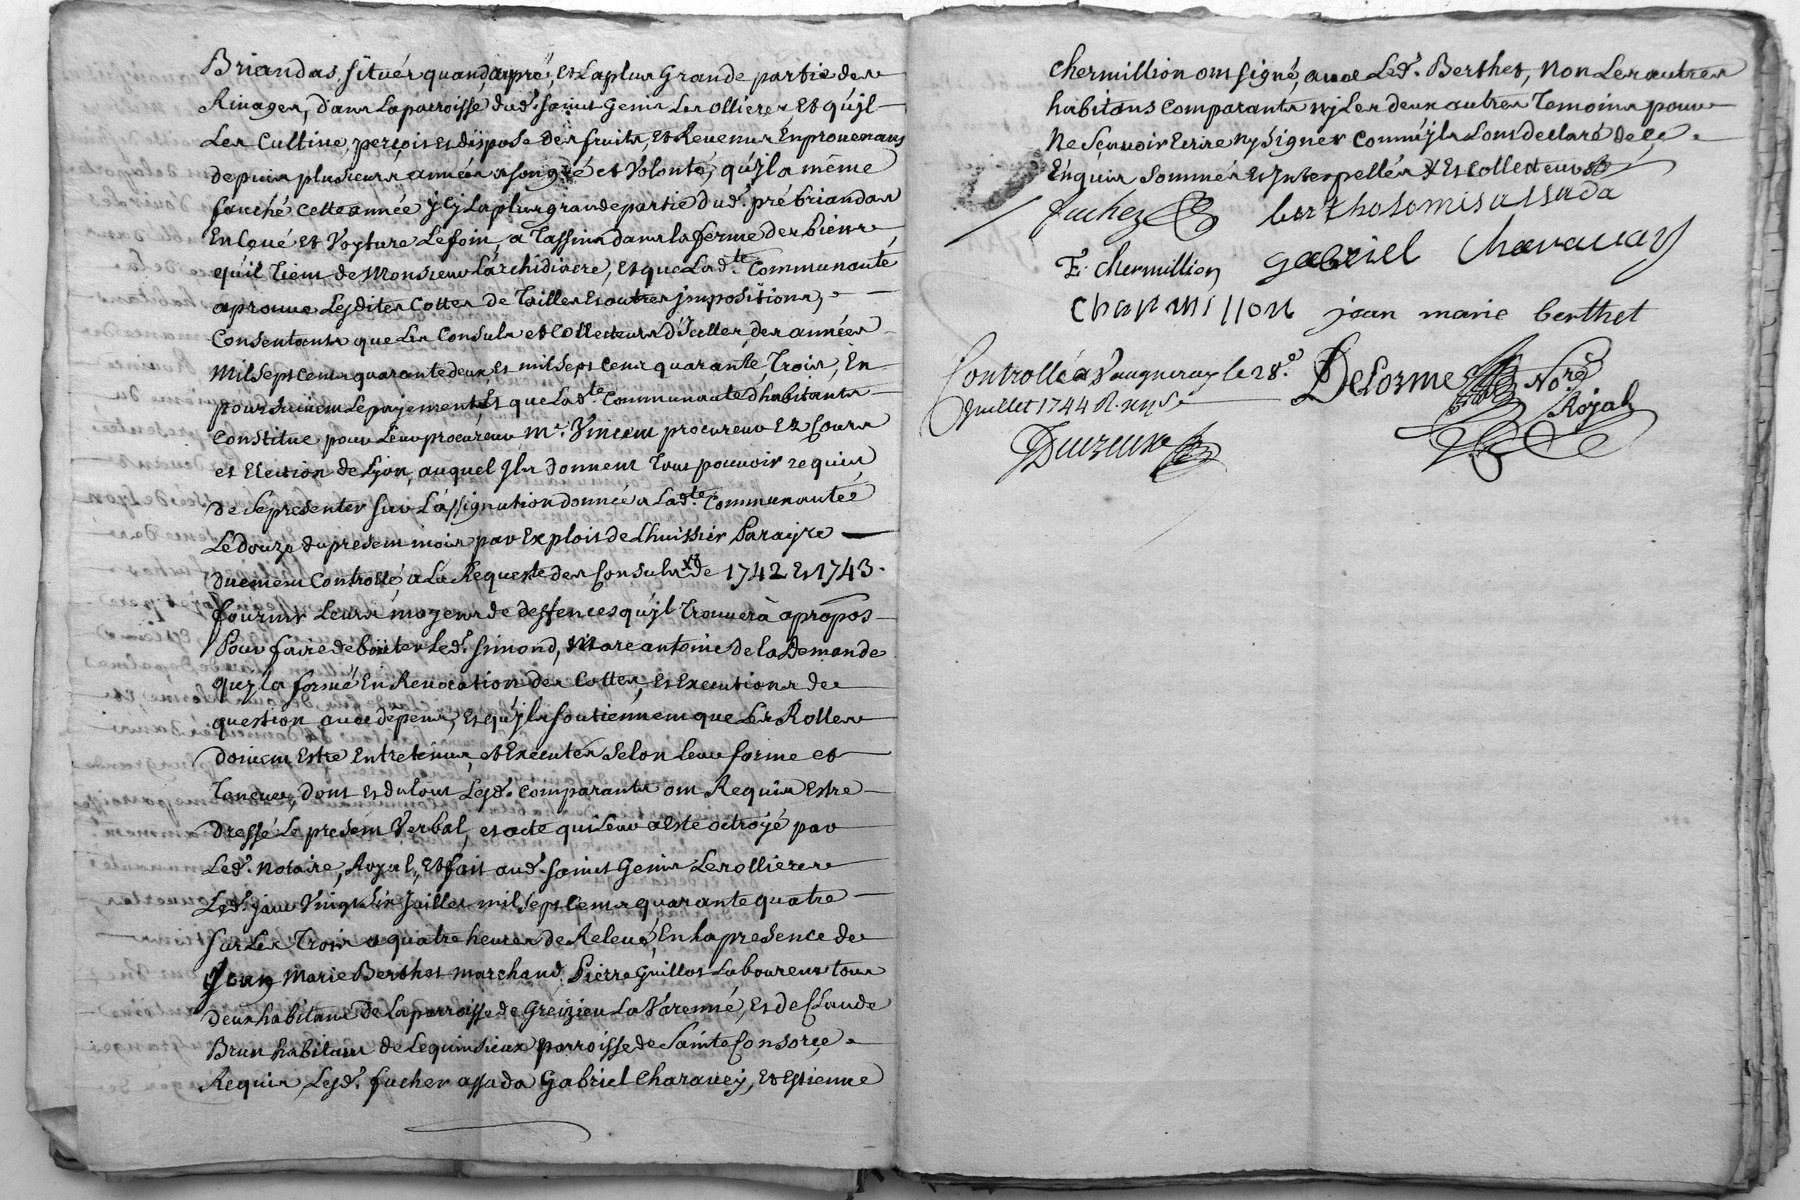 Briandas, situés quand aupré, et la plus Grande partie des
Rivages, dans La parroisse dud. saint Genis Les ollieres Et qu'jl
Les Cultive, perçois et dispose des fruits, et Revenus En provenans
depuis plusieurs années a son gré et Volonté, qu'jl a même
fauché cette année jcy La plus grande partie dud. pré briandas
En Levé et Voyture Le foin, a Tassins dans la ferme des biens
qu'il Tient de Monsieur L'archidiacre, et que Lad.te Communauté
aprouve Lesdites Cottes de Tailles et autres jmpositions,
Consentants que Les Consuls et Collecteurs d'Jcelles des années
Mil Sept Cents quarante deux, et mil sept Cent quarante Trois, En
poursuivent Le payement Et que Lad.te Communauté d'habitants
Constitue pour Leur procureur M.e Vincent procureur Ez Cours
et Election de Lyon, auquel Jls donnent Tous pouvoir requis
de se presenter sur L'assignation donnée a Lad.te Communauté
Le douze du present mois par Exploit de L'huissier Parayre
duement Controllé a La Requeste des Consuls de 1742 et 1743.
fournir Leurs moyens de deffences qu'jl Trouvera a propos
Pour faire debouter Led. Simond, Marc antoine de la Demande
qu'jl a formé En Revocation des Cottes, et Executions de
question avec depens, et qu'jls soutiennent que Les Rolles
doivent Estre Entretenus, et Executés selon leur forme et
Teneur, dont et du tout Lesd. comparants ont Requis Estre
Dressé Le present Verbal, et acte qui Leur a Esté octroyé par
Led. Notaire, Royal, Et fait aud. saint Genis Les ollieres
Led. jour Vingt Six Juillet mil Sept Cents quarante quatre
sur Les Trois a quatre heures de Relevé, En la presence de
Jean Marie Berthet marchand, Pierre Guillot Laboureur tous
deux habitans de La parroisse de Greizieu La Varenne, et de Claude
Brun habitant de Lequinsieux parroisse de Sainte Consorce
Requis, Lesd. fuchez assada Gabriel Charavey, et Estienne
chermillion ont signé, avec Led. Berthet, Non Les autres
habitans comparants ny Les deux autres Temoins pour
Ne sçavoir Ecrire ny signer comm'jls L'ont declaré de ce
Enquis sommés et Jnterpellés X et Collecteurs
fuchez bertholomis assada
E. chermillion gabriel Charavay
Cherinillon jean marie berthet
Controllé a Vaugneray le 28.e
Juillet 1744 R.
Delorme No.re
Royal